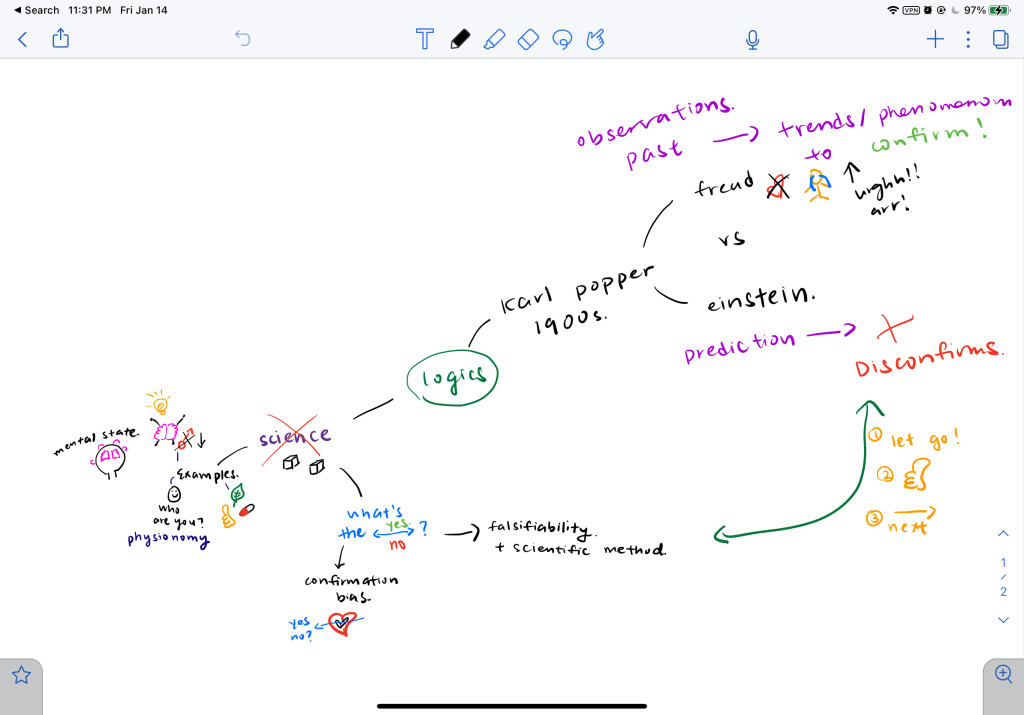 Search 11:31 PM Fri Jan 14
VPN 97%
T
observations.
past → trends/ phenomenom
to confirm!
freud
urghh!!
arr!
vs
Karl popper
1900s.
einstein.
prediction → X
Disconfirms.
logics
science
mental state.
Examples.
who
are you?
physionomy
what's
the yes ?
no
→ falsifiability.
+ scientific method.
confirmation
bias.
yes
no?
① let go!
②
③ next
1
/
2